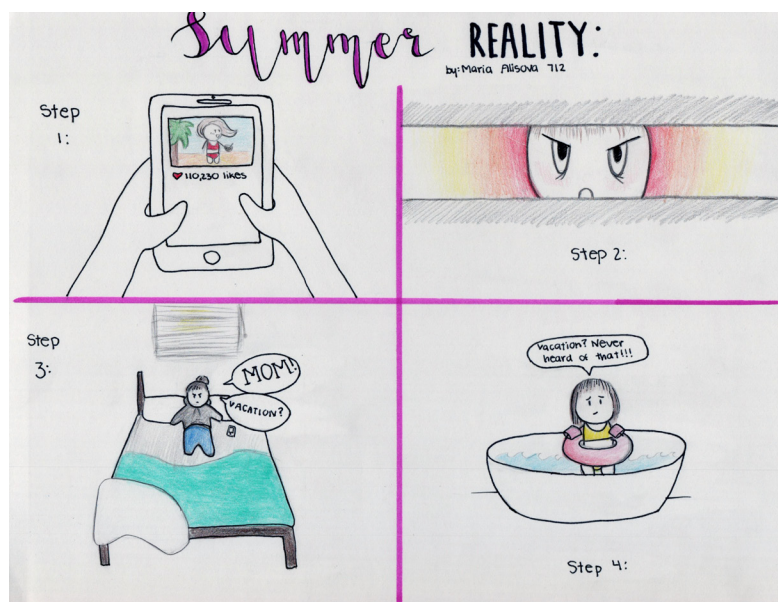 Summer REALITY:
by: Maria Alisova 712
Step
1:
110,230 likes
Step 2:
Step
3:
MOM!
VACATION?
Vacation? Never
heard of that!!!
Step 4: